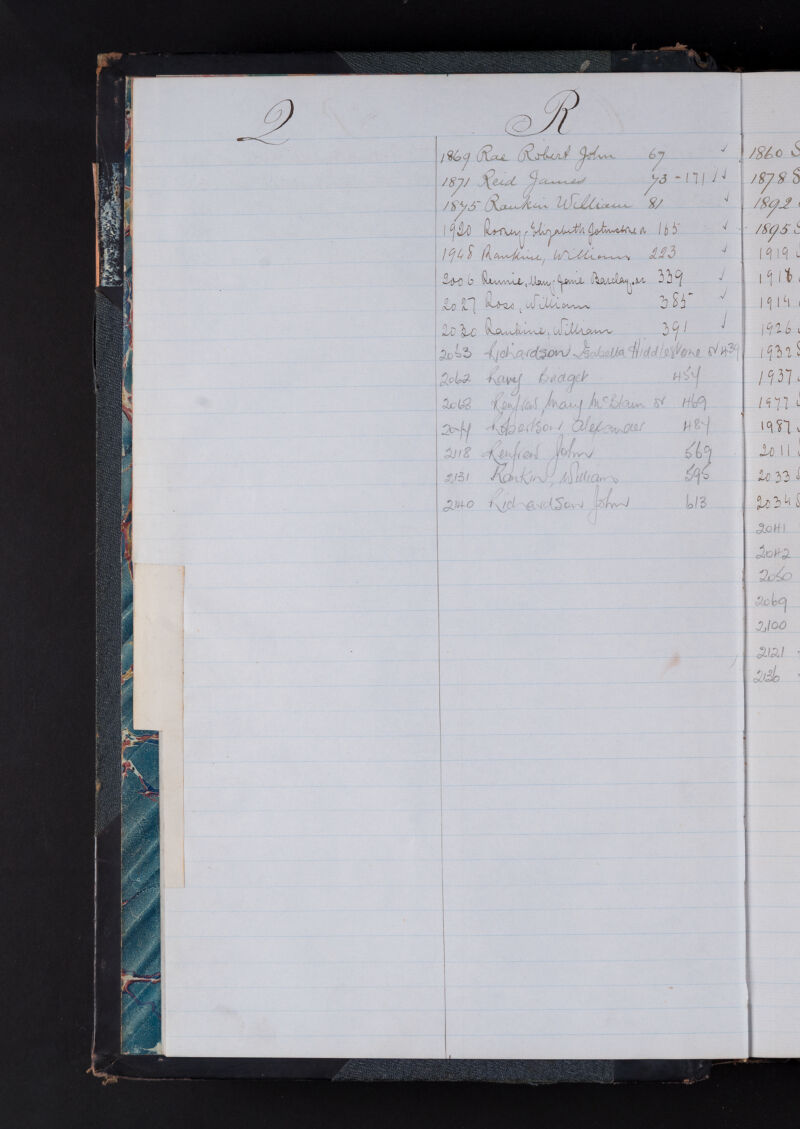 Q
R
1869 Rae Robert John 67 ✓
1871 Reid James 73-171 ✓✓
1875 Rankin William 81 ✓
1920 Rooney, Elizabeth Johnstone or 165 ✓
1948 Rankine, William 223 ✓
2006 Rennie, Mary Jamie Barclay, or 339 ✓
2027 Ross, William 385 ✓
2030 Rankine, William 391 ✓
2053 Richardson Isabella Hiddlestone or 439
2062 Bridget
2068 Renfrew Mary McBlain or 469
Robertson Alexander
2118 Renfrew John 569
2131 Rankin, William 595
2140 Richardson John 613
1860 S
1878 S
1892
1895 S
1919
1916
1914
1926
1932 S
1937
1977
1987
2011
2033
2034 S
2041
2042
2050
2069
2100
2121
2136